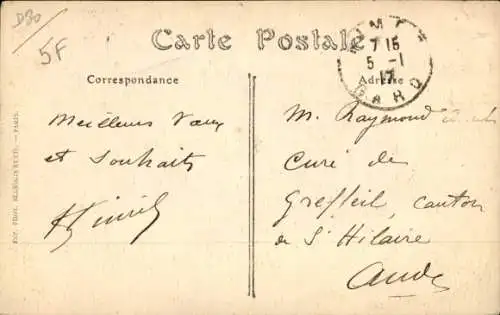 D30
5F
Carte Postale
Correspondance
Adresse
7 15
5 - 1
17
GARD
Meilleurs Vœux
et Souhaits
M. Raymond
Curé de
Greffeil, canton
de St Hilaire
Aude